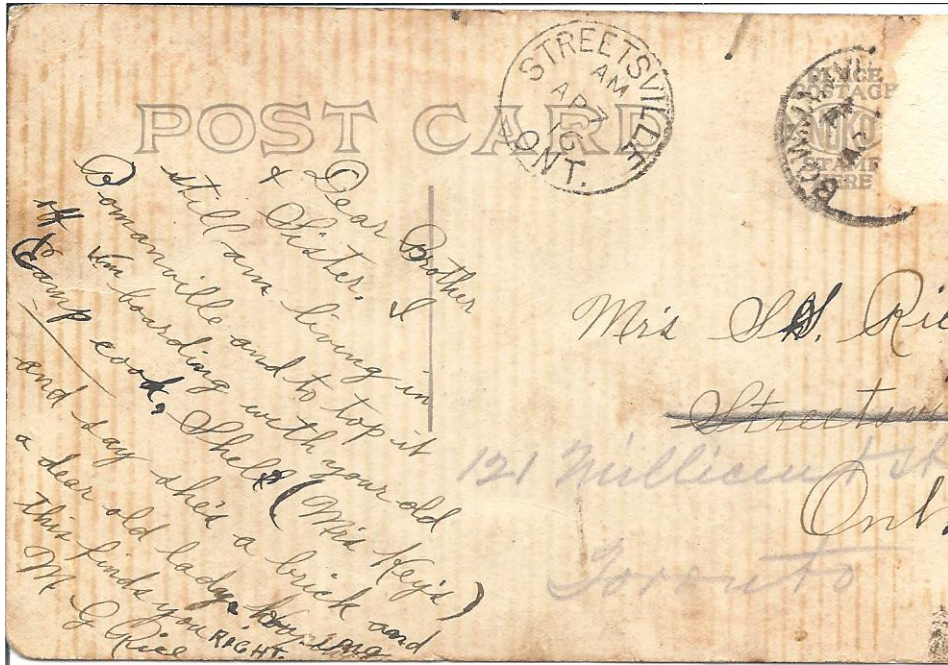 POST CARD
STREETSVILLE
AM
AP 7
16
ONT.
PLACE
POSTAGE
NOKO
STAMP
HERE
Dear Brother
& Sister. I
still am living in
Bomanville and to top it
off I'm boarding with your old
Camp cook, Shell (Mrs Key's)
and say she's a brick and
a dear old lady. hoping
this finds you RIGHT.
M G Rice
Mrs S. Ric
Streetsv
121 Millicent St
Ont.
Toronto